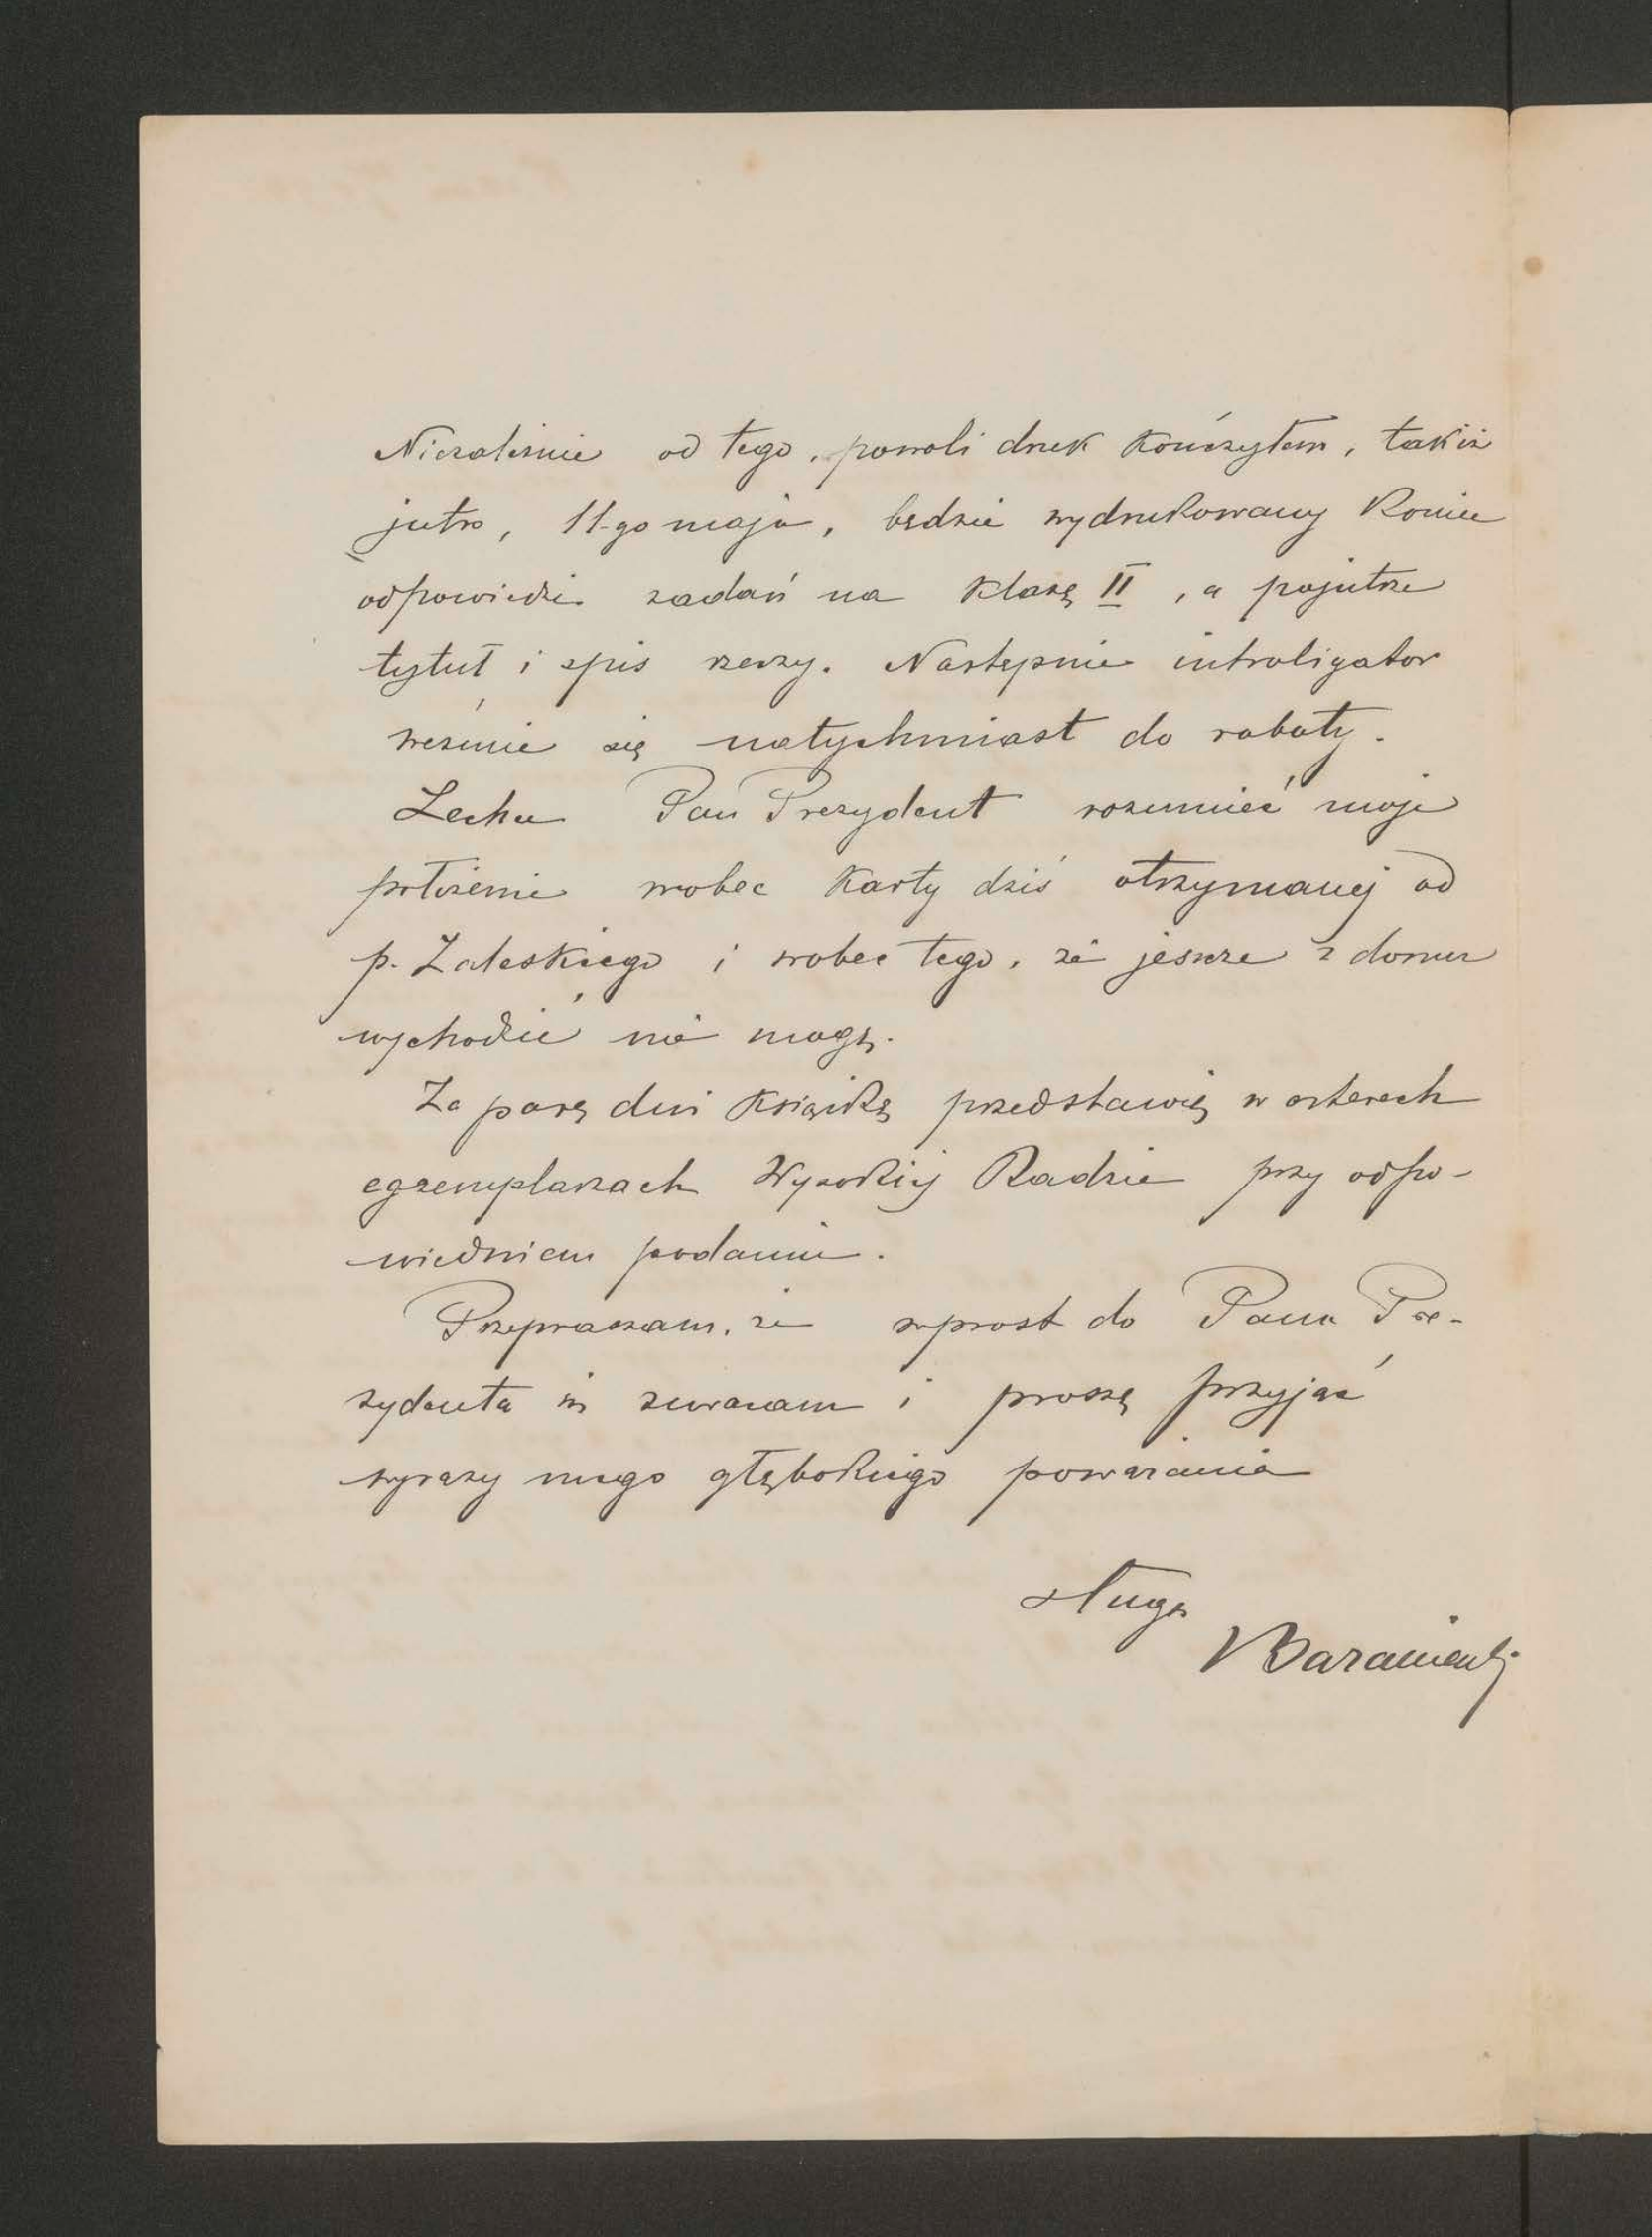 Niezależnie od tego, powoli druk kończyłem, tak iż
jutro, 11-go maja, będzie wydrukowany koniec
odpowiedzi zadań na klasę II, a pojutrze
tytuł i spis rzeczy. Następnie introligator
weźmie się natychmiast do roboty.
Zechce Pan Prezydent rozumieć moje
położenie wobec karty dziś otrzymanej od
p. Zaleskiego i wobec tego, że jeszcze z domu
wychodzić nie mogę.
Za parę dni książkę przedstawię w czterech
egzemplarzach Wysokiej Radzie przy odpo-
wiedniem podaniu.
Przepraszam, że wprost do Pana Pre-
zydenta się zwracam i proszę przyjąć
wyrazy mego głębokiego poważania
sługa
Baraniecki